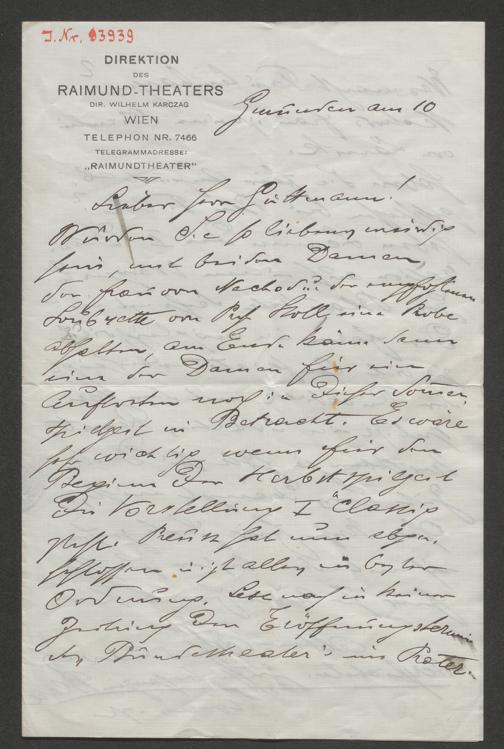 J. Nr. 13939
DIREKTION
DES
RAIMUND-THEATERS
DIR. WILHELM KARCZAG
WIEN
TELEPHON NR. 7466
TELEGRAMMADRESSE:
„RAIMUNDTHEATER"
Gmunden am 10
Lieber Herr Guttmann!
Würden Sie so liebenswürdig
sein, mit beiden Damen,
der Frau von Nachod u. der empfohlenen
Soubrette von Prof. Stoll eine Probe
abhalten, am Ende käme dann
eine der Damen für ein
Auftreten noch in dieser Sommer
spielzeit in Betracht. Es wäre
sehr wichtig wenn für den
Beginn der Herbstspielzeit
die Vorstellung I a classig
steht. Reuss hat nun abge-
schlossen ist alles in bester
Ordnung. Lese noch in keiner
Zeitung den Eröffnungstermin
des Bundestheater's im Prater.